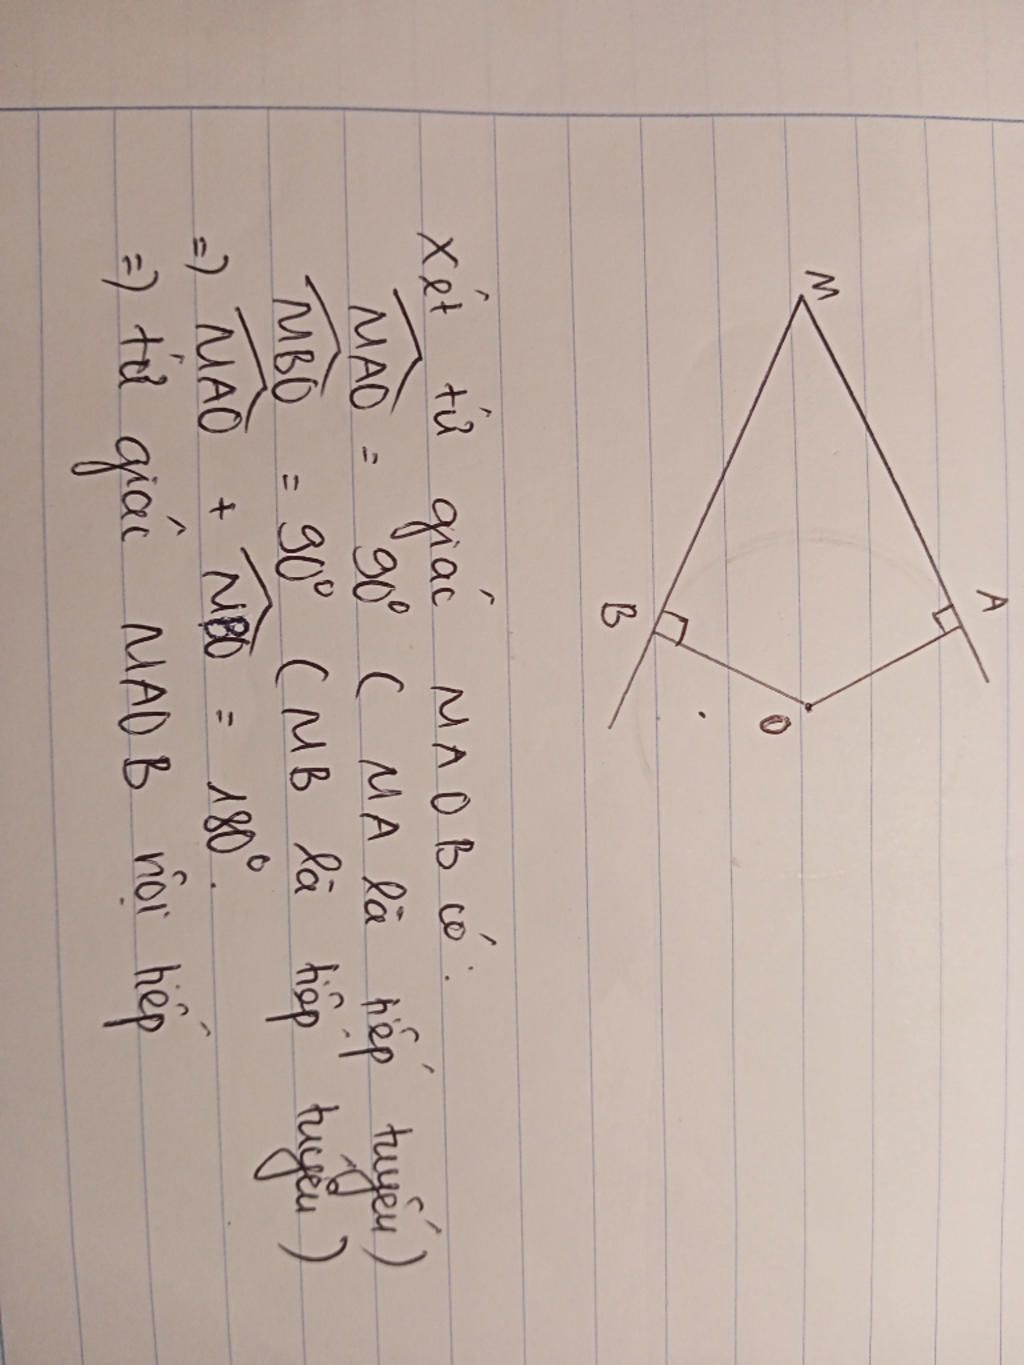 M
A
B
O
Xét tứ giác MAOB có:
MAO = 90° ( MA là tiếp tuyến)
MBO = 90° ( MB là tiếp tuyến )
=) MAO + MBO = 180°.
=) tứ giác MAOB nội tiếp